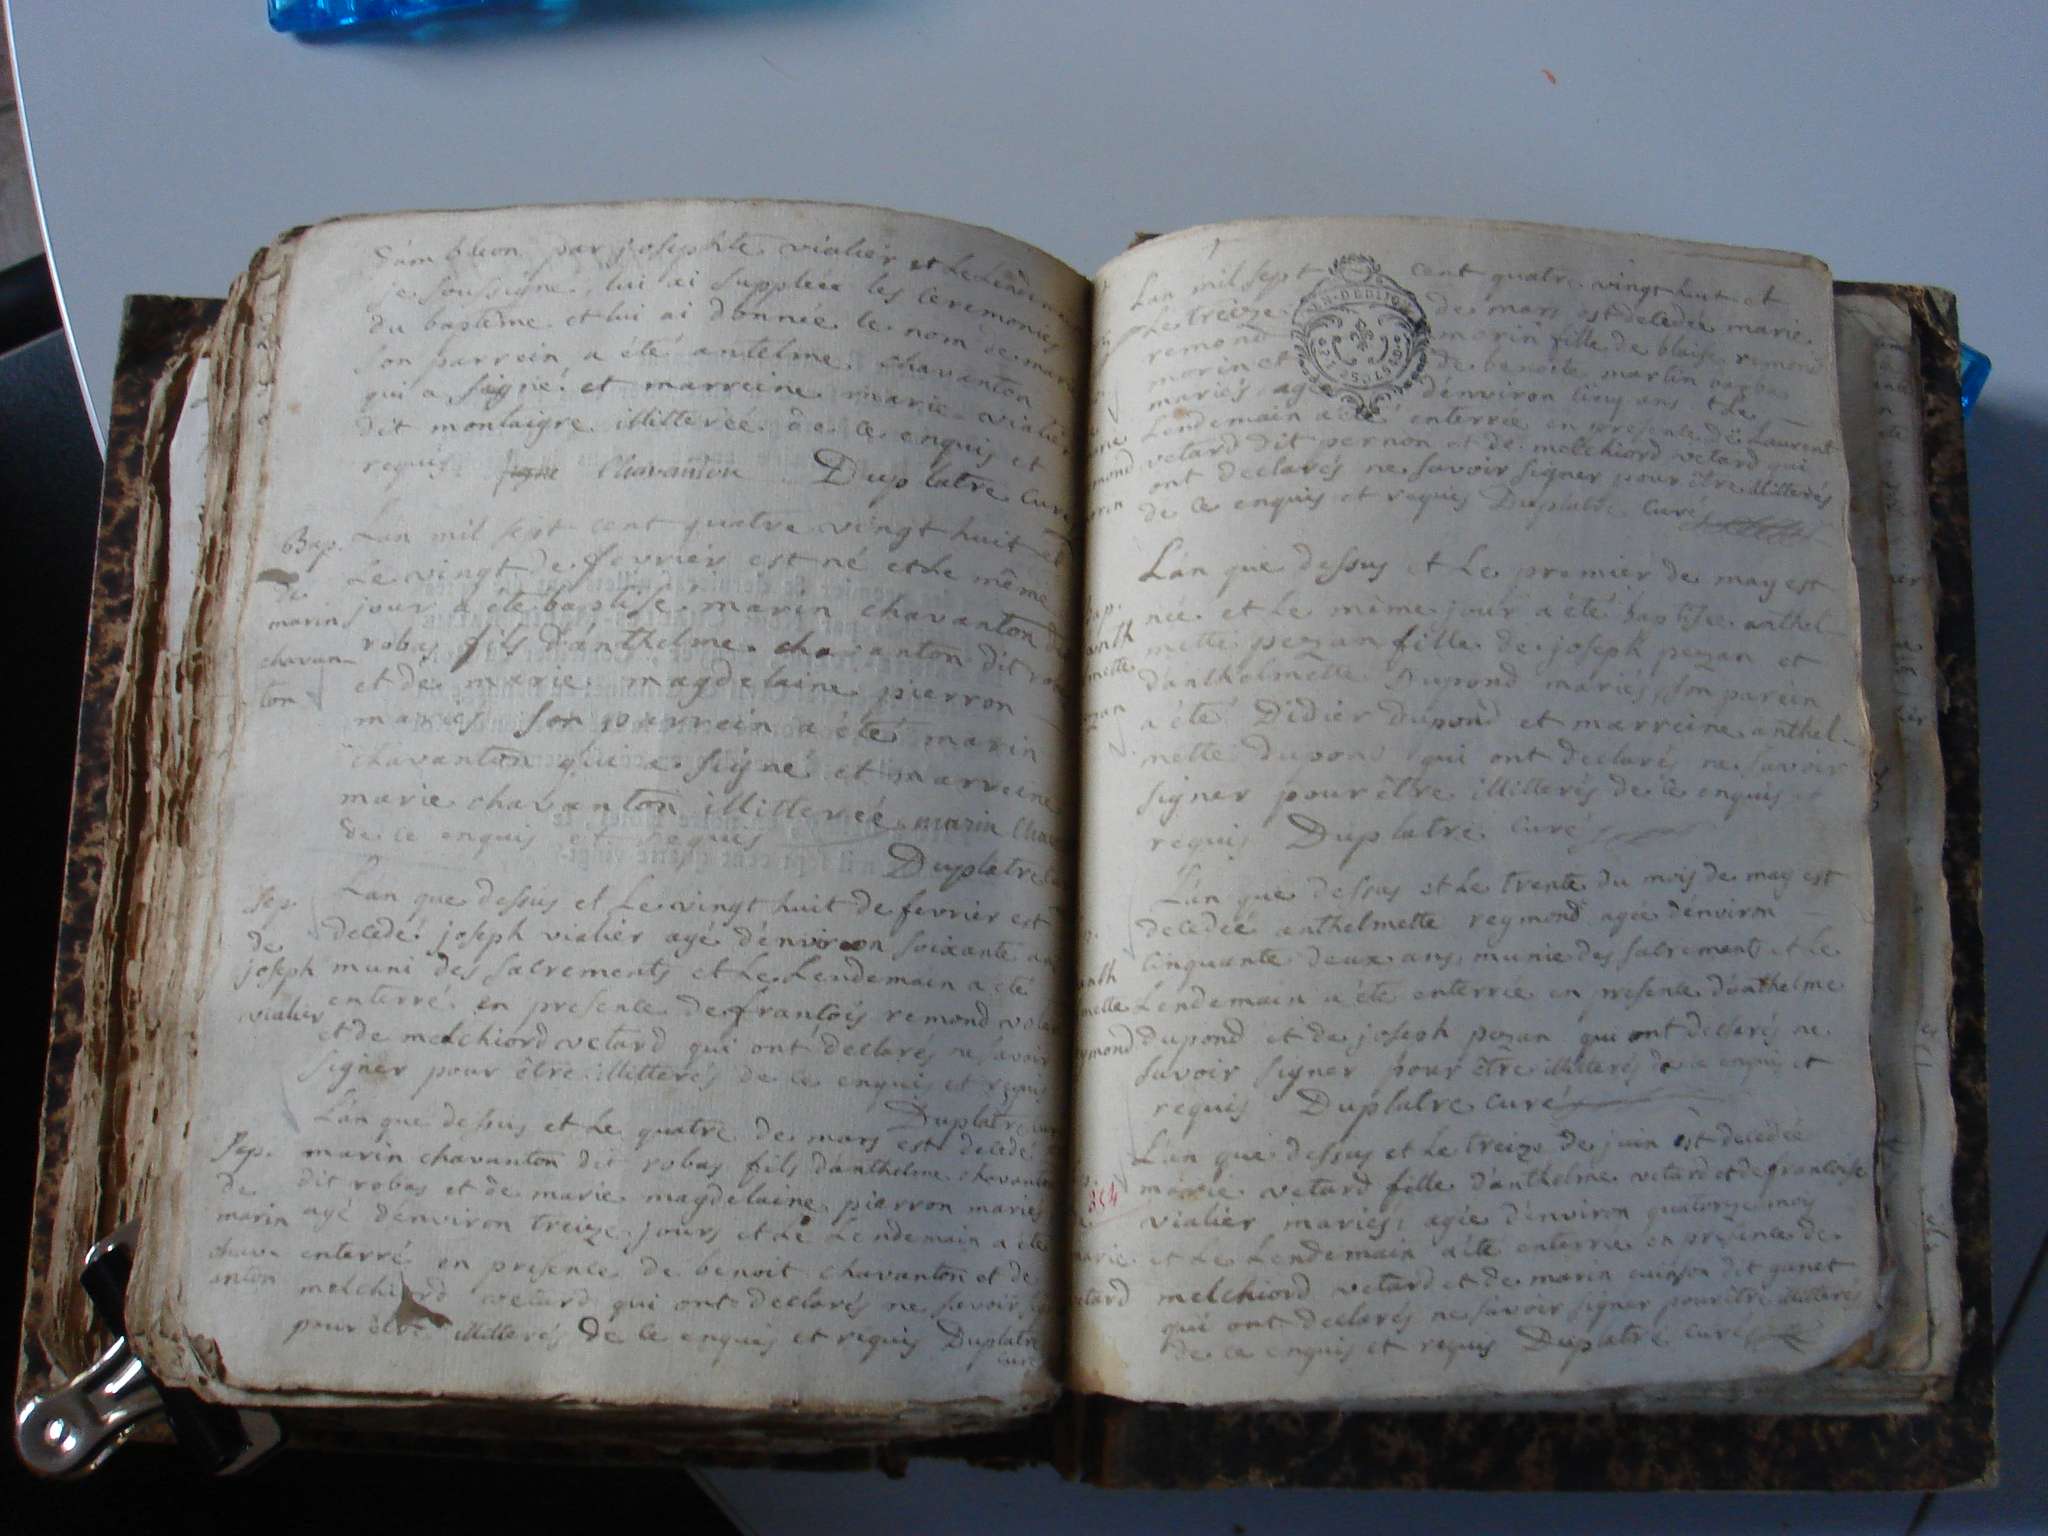 d'ambleon par josephte vialier et le lendemain
je soussigné lui ai suppléee les ceremonies
du baptême et lui ai donnée le nom de marie
son parrein a été antelme chavanton
qui a signé et marreine marie vialier
dit montaigre illitterée de ce enquis et
requis signé Chavanton Duplatre Curé
Bap.
de
marin
chavan-
ton
L'an mil sept cent quatre vingt huit et
Le vingt de fevrier est né et Le même
jour a été baptisé marin chavanton dit
robas fils d'anthelme chavanton dit robas
et de marie magdelaine pierron
mariés son parrein a été marin
chavanton qui a signé et marreine
marie chavanton illitterée marin Chav
de ce enquis et requis
Duplatre
Sep.
de
joseph
vialier
L'an que dessus et Le vingt huit de fevrier est
decedé joseph vialier agé d'environ soixante an
muni des sacrements et Le Lendemain a été
enterré en presence de françois remond
et de melchiord vetard qui ont declarés ne savoir
signer pour être illitterés de ce enquis et requis
Duplatre curé
Sep.
de
marin
chav
anton
L'an que dessus et Le quatre de mars est decedé
marin chavanton dit robas fils d'anthelme chavanton
dit robas et de marie magdelaine pierron mariés
agé d'environ treize jours et Le Lendemain a été
enterré en presence de benoit chavanton et de
melchiord vetard qui ont declarés ne savoir
pour être illitterés de ce enquis et requis Duplatre
curé
L'an mil sept cent quatre vingt huit et
Le treize de mars est decedée marie
remond morin fille de blaise remond
morin et de benoite martin
mariés agée d'environ cinq ans et Le
Lendemain a été enterrée en presence de Laurent
vetard dit pernon et de melchiord vetard qui
ont declarés ne savoir signer pour être illitterés
de ce enquis et requis Duplatre curé
bap.
anth
mette
pezan
L'an que dessus et Le premier de may est
née et Le même jour a été baptisée anthel-
mette pezan fille de joseph pezan et
d'anthelmette Dupond mariés son parein
a été Didier dupond et marreine anthel-
mette dupond qui ont declarés ne savoir
signer pour être illitterés de ce enquis et
requis Duplatre curé
anth
melle
reymond
L'an que dessus et Le trente du mois de may est
decedée anthelmette reymond agée d'environ
cinquante deux ans, munie des sacrements et Le
Lendemain a été enterrée en presence d'anthelme
dupond et de joseph pezan qui ont declarés ne
savoir signer pour être illitterés de ce enquis et
requis Duplatre curé
354
marie
vetard
L'an que dessus et Le treize de juin est decedée
marie vetard fille d'anthelme vetard et de françoise
vialier mariés, agée d'environ quatorze moy
et Le Lendemain a été enterrée en presence de
melchiord vetard et de marin cuisson dit ganet
qui ont declarés ne savoir signer pour être illitterés
de ce enquis et requis Duplatre curé